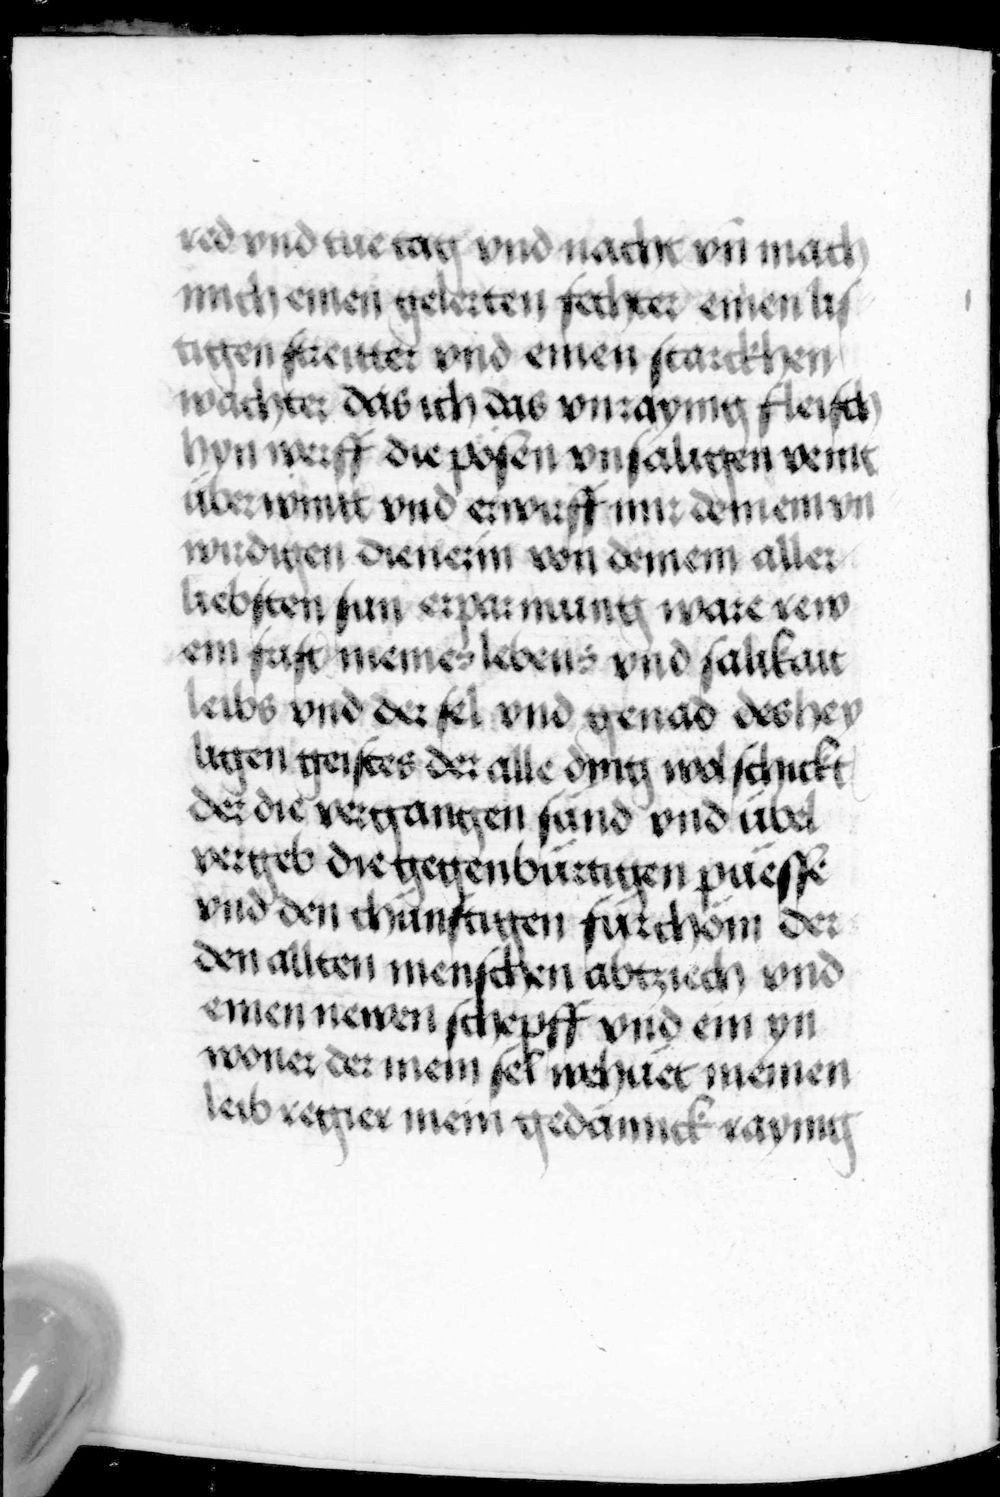 red vnd tue tag vnd nacht vn̄ mach
mich einen gelerten fechter einen lis
tigen streitter vnd einen starckhen
wachter das ich das vnraynig fleisch
hyn werff die pösen vnsäligen veint
überwintt vnd erwirff mir deinem vn
wirdigen dienerin von deinem aller
liebsten sun erparmung ware rew
ein frist meines lebens vnd sälikait
leibs vnd der sel vnd genad des hey
ligen geistes der alle ding wol schickt
der die vergangen sünd vnd übel
vergeb die gegenbürtigen püesse
vnd den chünftigen fürchöm der
den allten menschen abtziech vnd
einen newen schepff vnd ein yn
woner der mein sel wehüet meinen
leib regier mein gedännck raynig